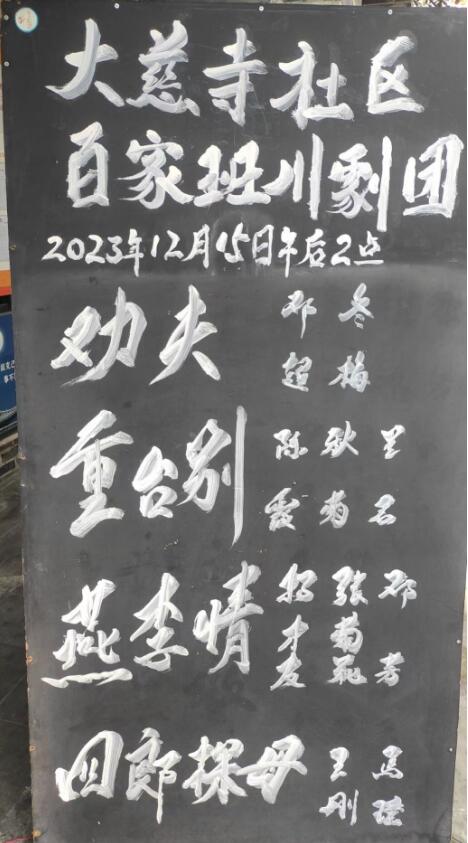 大慈寺社区
百家班川剧团
2023年12月15日午后2点
劝夫 邓超 冬梅
重台别 陈霞 秋菊 里名
燕李情 杨才友 张菊花 邓芳
四郎探母 王刚 馬瑛